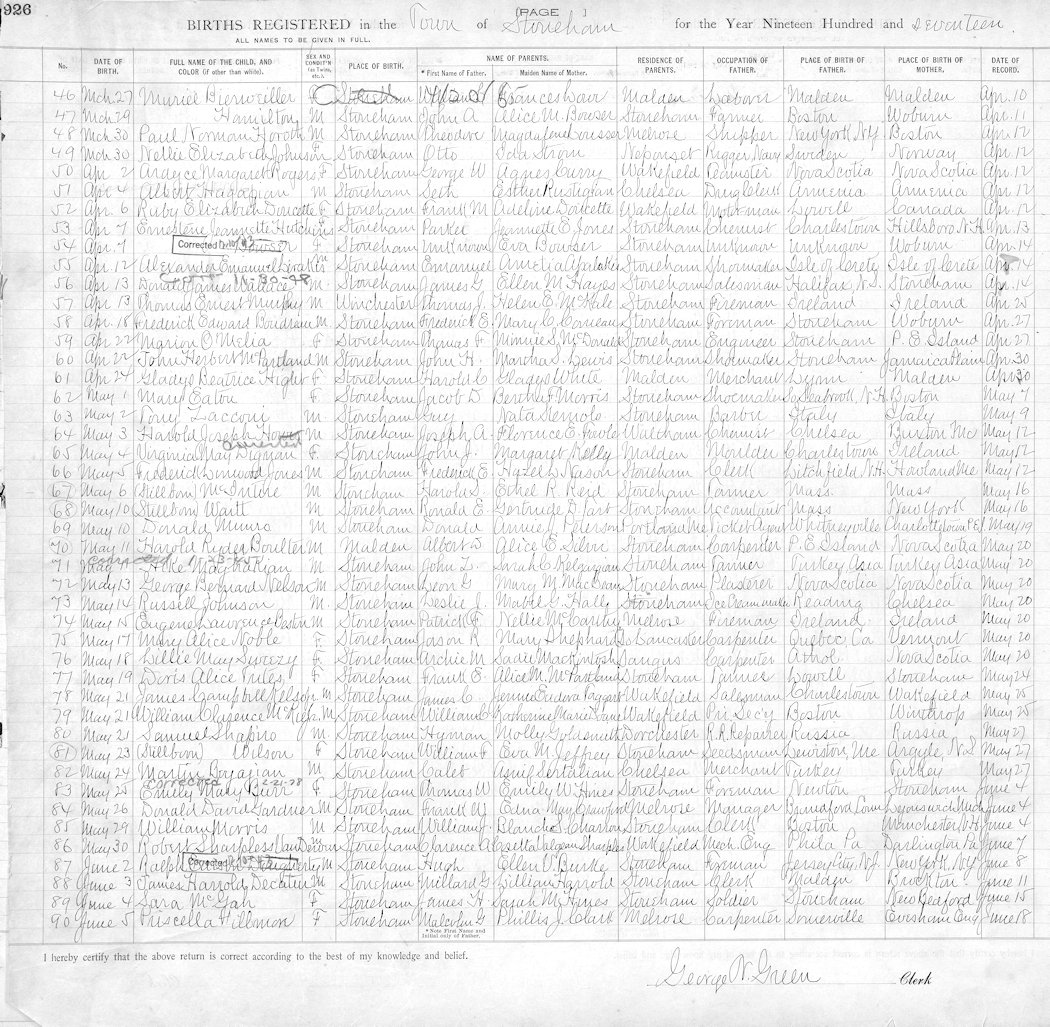 926
(PAGE )
BIRTHS REGISTERED in the Town of Stoneham for the Year Nineteen Hundred and seventeen
ALL NAMES TO BE GIVEN IN FULL.
No. DATE OF BIRTH. FULL NAME OF THE CHILD, AND COLOR (if other than white). SEX AND CONDIT'N (as Twins, etc.). PLACE OF BIRTH. NAME OF PARENTS. * First Name of Father. Maiden Name of Mother. RESIDENCE OF PARENTS. OCCUPATION OF FATHER. PLACE OF BIRTH OF FATHER. PLACE OF BIRTH OF MOTHER. DATE OF RECORD.
46 Mch 27 Muriel Bierweiller F Stoneham Frances Malden Laborer Malden Malden Apr. 10
47 Mch 29 Hamilton M Stoneham John A. Alice M. Bowser Stoneham Farmer Boston Woburn Apr. 11
48 Mch 30 Paul Norman M Stoneham Theodore Melrose Shipper New York, N.Y. Boston Apr. 12
49 Mch 30 Nellie Elizabeth Johnson F Stoneham Otto Ida Strom Neponset Rigger Navy Sweden Norway Apr. 12
50 Apr 2 Ardyce Margaret Rogers F Stoneham George W Agnes Curry Wakefield Teamster Nova Scotia Nova Scotia Apr. 12
51 Apr 4 Albert Hagopian M Stoneham Seth Esther Rustigian Chelsea Drug Clerk Armenia Armenia Apr. 12
52 Apr 6 Ruby Elizabeth Doucette F Stoneham Frank M Adeline Doucette Wakefield Motorman Lowell Canada Apr. 12
53 Apr 7 Ernestene Jeannette Hutchins F Stoneham Parker Jennette E Jones Stoneham Chemist Charlestown Hillsboro N.H. Apr. 13
54 Apr. 7 Corrected F Stoneham Unknown Eva Bowser Stoneham Unknown Unknown Woburn Apr. 14
55 Apr. 12 Alexander Emanuel M Stoneham Emanuel Amelia Stoneham Shoemaker Isle of Crete Isle of Crete Apr 14
56 Apr 13 Donald James Wallace M Stoneham James G Ellen M Hayes Stoneham Salesman Halifax, N.S. Stoneham Apr 14
57 Apr 13 Thomas Ernest Murphy M Winchester Thomas J. Helen E. McHale Stoneham Fireman Ireland Ireland Apr 25
58 Apr. 18 Frederick Edward Boudreau M. Stoneham Frederick E. Mary C. Comeau Stoneham Foreman Stoneham Woburn Apr. 27
59 Apr 22 Marion O'Melia F Stoneham Thomas F Minnie S. McDonald Stoneham Engineer Stoneham P. E. Island Apr. 27
60 Apr 22 John Herbert McPartland M Stoneham John H. Martha S. Lewis Stoneham Shoemaker Stoneham Jamaica Plain Apr. 30
61 Apr 24 Gladys Beatrice Hight F Stoneham Harold C Gladys White Malden Merchant Lynn Malden Apr 30
62 May 1 Mary Eaton F Stoneham Jacob D Berthly Morris Stoneham Shoemaker So. Seabrook, N.H. Boston May 7
63 May 2 Tony Zacconi M. Stoneham Guy Stoneham Italy Italy May 9
64 May 3 Harold Joseph M Stoneham Joseph A. Florence E. Fowle Waltham Chemist Chelsea Buxton Me May 12
65 May 4 Virginia May Dignan F Stoneham John J. Margaret Kelly Malden Moulder Charlestown Ireland May 12
66 May 5 Frederick Linwood Jones M Stoneham Frederick E. Hazel L. Nason Stoneham Clerk Litchfield, N.H. Haviland Me May 12
67 May 6 Stillborn McIntire M Stoneham Harold S Ethel R. Reid Stoneham Farmer Mass Mass May 16
68 May 10 Stillborn Waitt M Stoneham Ronald E Gertrude D. Stoneham Accountant Mass New York May 16
69 May 10 Donald Munro M Stoneham Donald Annie J. Peterson Ticket Agent Whitneyville Charlottetown P.E.I May 19
70 May 11 Harold Ryder Boulter M Malden Albert W Alice E. Stoneham Carpenter P. E. Island Nova Scotia May 20
71 May M Stoneham John L. Sarah E. Stoneham Tanner Turkey Asia Turkey Asia May 20
72 May 13 George Bernard Nelson M Stoneham Leon G Mary M. MacBean Stoneham Plasterer Nova Scotia Nova Scotia May 20
73 May 14 Russell Johnson M. Stoneham Leslie J. Mabel G. Hall Stoneham Ice Cream maker Reading Chelsea May 20
74 May 15 Eugene Lawrence M Stoneham Patrick F. Nellie McCarthy Melrose Fireman Ireland Ireland May 20
75 May 17 Mary Alice Noble F. Stoneham Jason R Mary Shephard So Lancaster Carpenter Quebec, Ca Vermont May 20
76 May 18 Lillie May Swezy F Stoneham Archie M Sadie MacKintosh Saugus Carpenter Athol Nova Scotia May 20
77 May 19 Doris Alice Niles F Stoneham Frank E. Alice M. McPartland Stoneham Tanner Lowell Stoneham May 24
78 May 21 James Campbell Nelson M Stoneham James C. Jennie Eudora Wakefield Salesman Charlestown Wakefield May 25
79 May 21 William Clarence M Stoneham William C Katherine Marie Wakefield Pri Sec'y Boston Winthrop May 25
80 May 21 Samuel Shapiro M. Stoneham Hyman Molly Goldsmith Dorchester R.R. Repairer Russia Russia May 27
81 May 23 (Stillborn) Wilson F Stoneham William F Eva M Jeffrey Stoneham Seedsman Lewiston, Me Argyle, N.S May 27
82 May 24 Martin Boyajian M Stoneham Caleb Stoneham Chelsea Merchant Turkey Turkey May 27
83 May 25 Emily Mary Burr F Stoneham Thomas W Emily W. Hines Stoneham Foreman Newton Stoneham June 4
84 May 26 Donald David Gardner M Stoneham Frank W. Edna May Crawford Melrose Manager Branford Conn June 4
85 May 29 William Morris M Stoneham William J. Blanche Stoneham Clerk Boston Manchester N.H. June 4
86 May 30 Robert Sharpless M Stoneham Clarence A Wakefield Mech. Eng. Phila Pa Darlington Pa June 7
87 June 2 Ralph Corrected M Stoneham Hugh Ellen V. Burke Stoneham Jersey City, N.J. New York, N.Y June 8
88 June 3 James Harrold Decatur M Stoneham Millard G Lillian Harrold Stoneham Clerk Malden Brockton June 11
89 June 4 Sara McGah F Stoneham James H Sarah M. Hines Stoneham Soldier Stoneham New Bedford June 15
90 June 5 Priscella Hillman F Stoneham Malcolm G Phillis J. Clark Melrose Carpenter Somerville Evesham Eng June 18
* Note First Name and Initial only of Father.
I hereby certify that the above return is correct according to the best of my knowledge and belief.
George N. Green Clerk